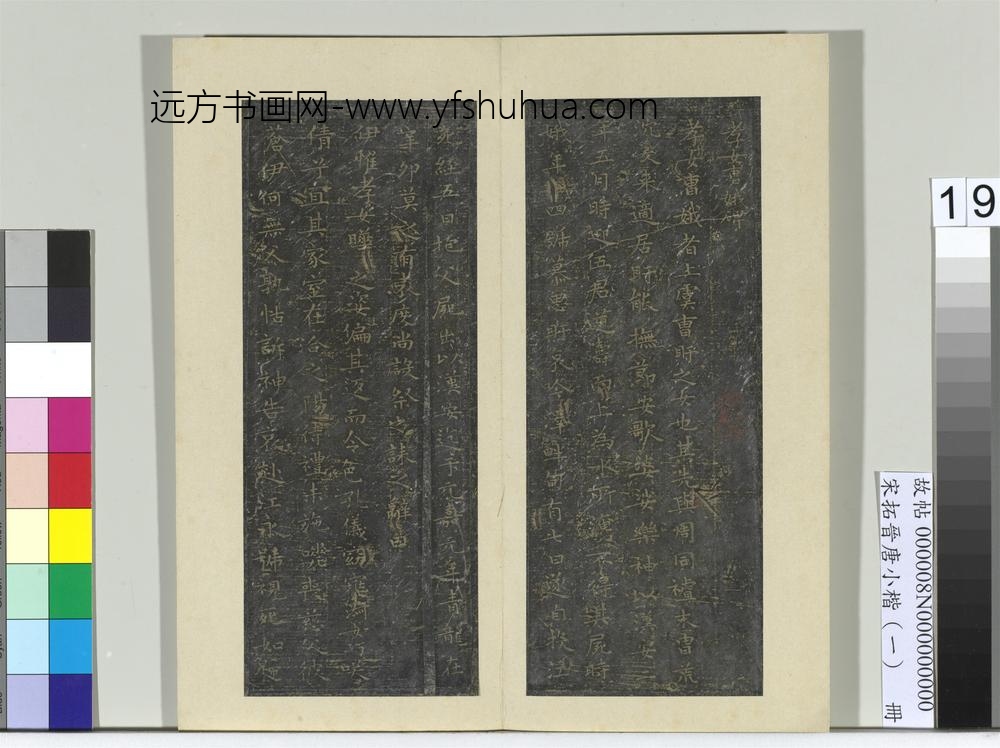 远方书画网-www.yfshuhua.com
孝女曹娥碑
孝女曹娥者上虞曹盱之女也其先與周同祖末胄荒
沉爰来適居盱能撫節安歌婆娑樂神以漢安二
年五月時迎伍君逆濤而上為水所淹不得其屍時
娥年十四號慕思盱哀吟澤畔旬有七日遂自投江
死經五日抱父屍出以漢安迄于元嘉元年青龍在
辛卯莫之有表度尚設祭之誄之辭曰
伊惟孝女曄之姿偏其返而令色孔儀窈窕淑女巧咲
倩兮宜其家室在洽之陽待禮未施嗟喪慈父彼
蒼伊何無父孰怙訴神告哀赴江永號視死如歸
19
故帖 000008N000000000
宋拓晉唐小楷（一） 冊